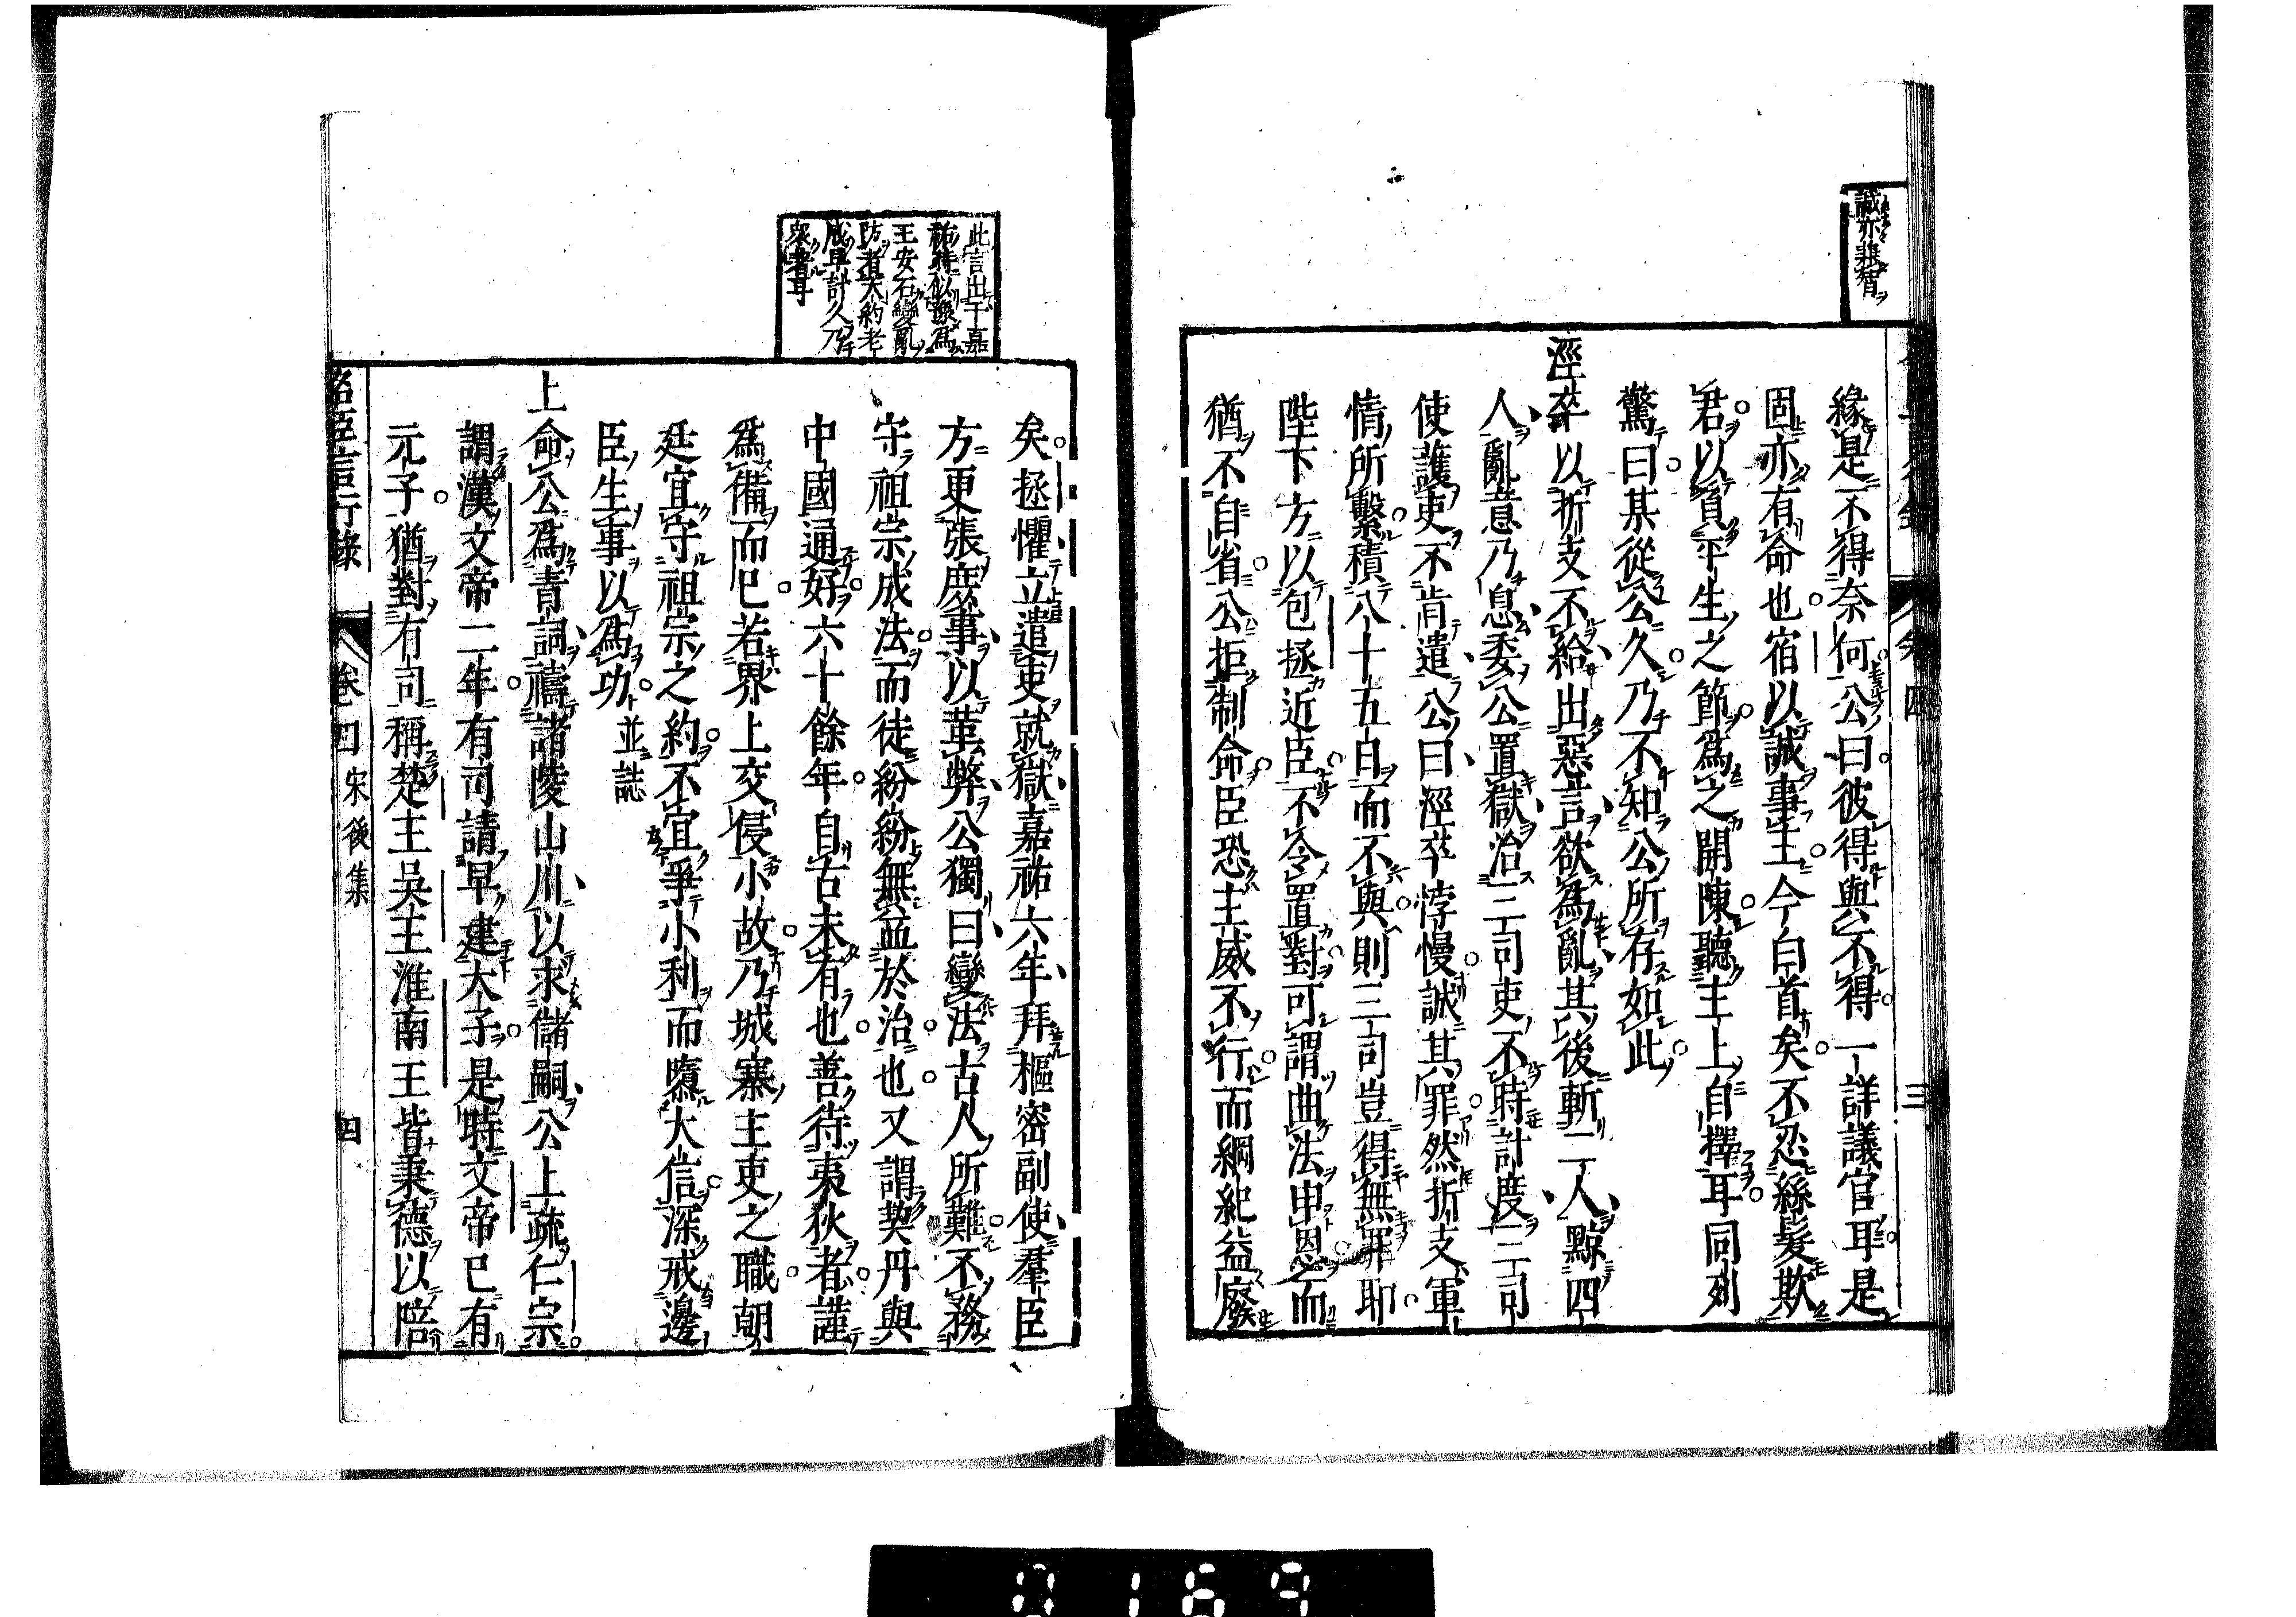 誠亦難智
緣是不得奈何公曰彼得與不得一詳議官耳是
固亦有命也宿以誠事主今白首矣不忍絲髮欺
君以負平生之節爲之開陳聽主上自擇耳同列
驚曰某從公久乃不知公所存如此
涇卒以折支不給出惡言欲爲亂其後斬二人黥四
人亂意乃息委公置獄治三司吏不時計度三司
使護吏不肯遣公曰涇卒悖慢誠其罪然折支軍
情所繫積八十五日而不與則三司豈得無罪耶
陛下方以包拯近臣不令置對可謂曲法申恩而
猶不自省公拒制命臣恐主威不行而綱紀益廢
矣拯懼立遣吏就獄嘉祐六年拜樞密副使羣臣
方更張庶事以革弊公獨曰變法古人所難不務
守祖宗成法而徒紛紛無益於治也又謂契丹與
中國通好六十餘年自古未有也善待夷狄者謹
爲備而已若界上交侵小故乃城寨主吏之職朝
廷宜守祖宗之約不宜爭小利而隳大信深戒邊
臣生事以爲功並誌
上命公爲青詞禱諸陵山川以求儲嗣公上疏仁宗
謂漢文帝二年有司請早建太子是時文帝已有
元子猶對有司稱楚王吳王淮南王皆秉德以陪
此言出于嘉
祐時似豫爲
王安石變亂
防者大約老
成早計久乃
衆著耳
名臣言行錄
卷四 宋後集
四
0169